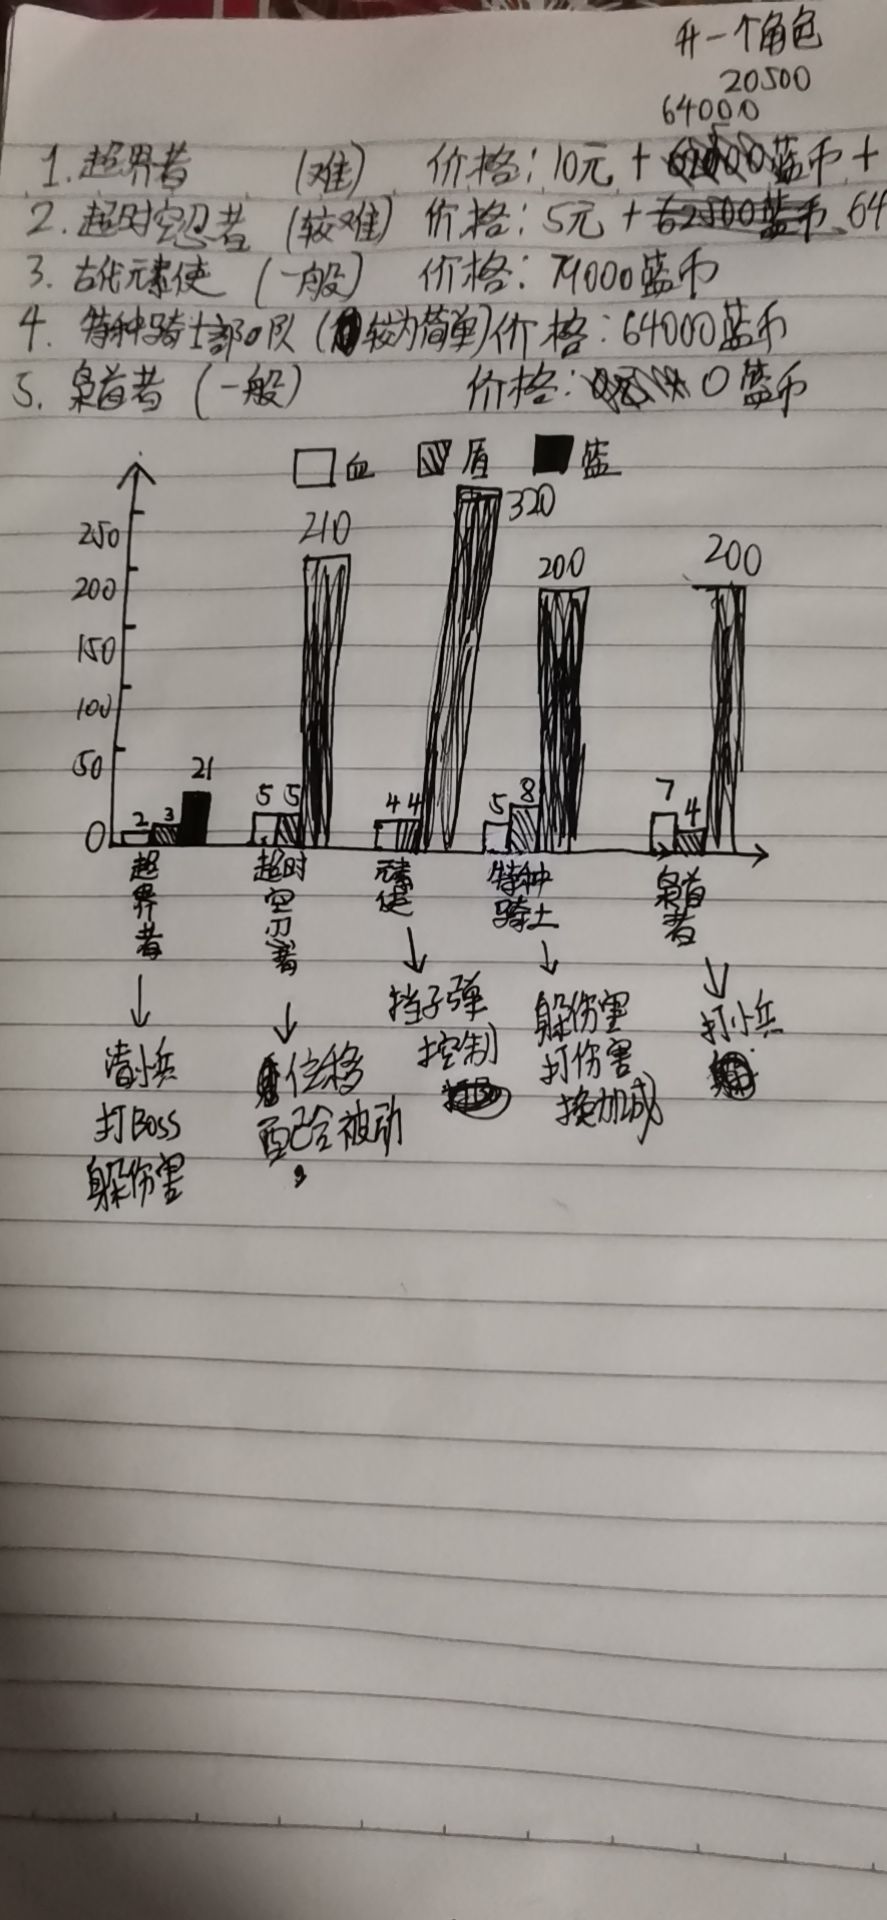 升一个角色
20500
64000
1. 超界者 (难) 价格: 10元 + 蓝币 +
2. 超时空忍者 (较难) 价格: 5元 + 62500蓝币 64
3. 古代元素使 (一般) 价格: 74000蓝币
4. 特种骑士部队 (较为简单) 价格: 64000蓝币
5. 枭首者 (一般) 价格: 0蓝币
血 盾 蓝
250
200
150
100
50
0
2 3 21
5 5 210
4 4 320
5 8 200
7 4 200
超界者
超时空忍者
元素使
特种骑士
枭首者
清小兵
打Boss
躲伤害
位移
配合被动
挡子弹
控制
躲伤害
打伤害
换加减
打小兵